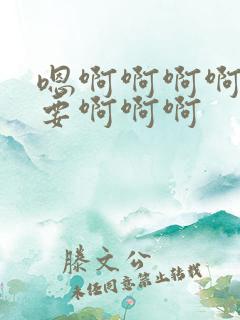 嗯啊啊啊啊
要啊啊啊
滕文公
未经同意禁止转载